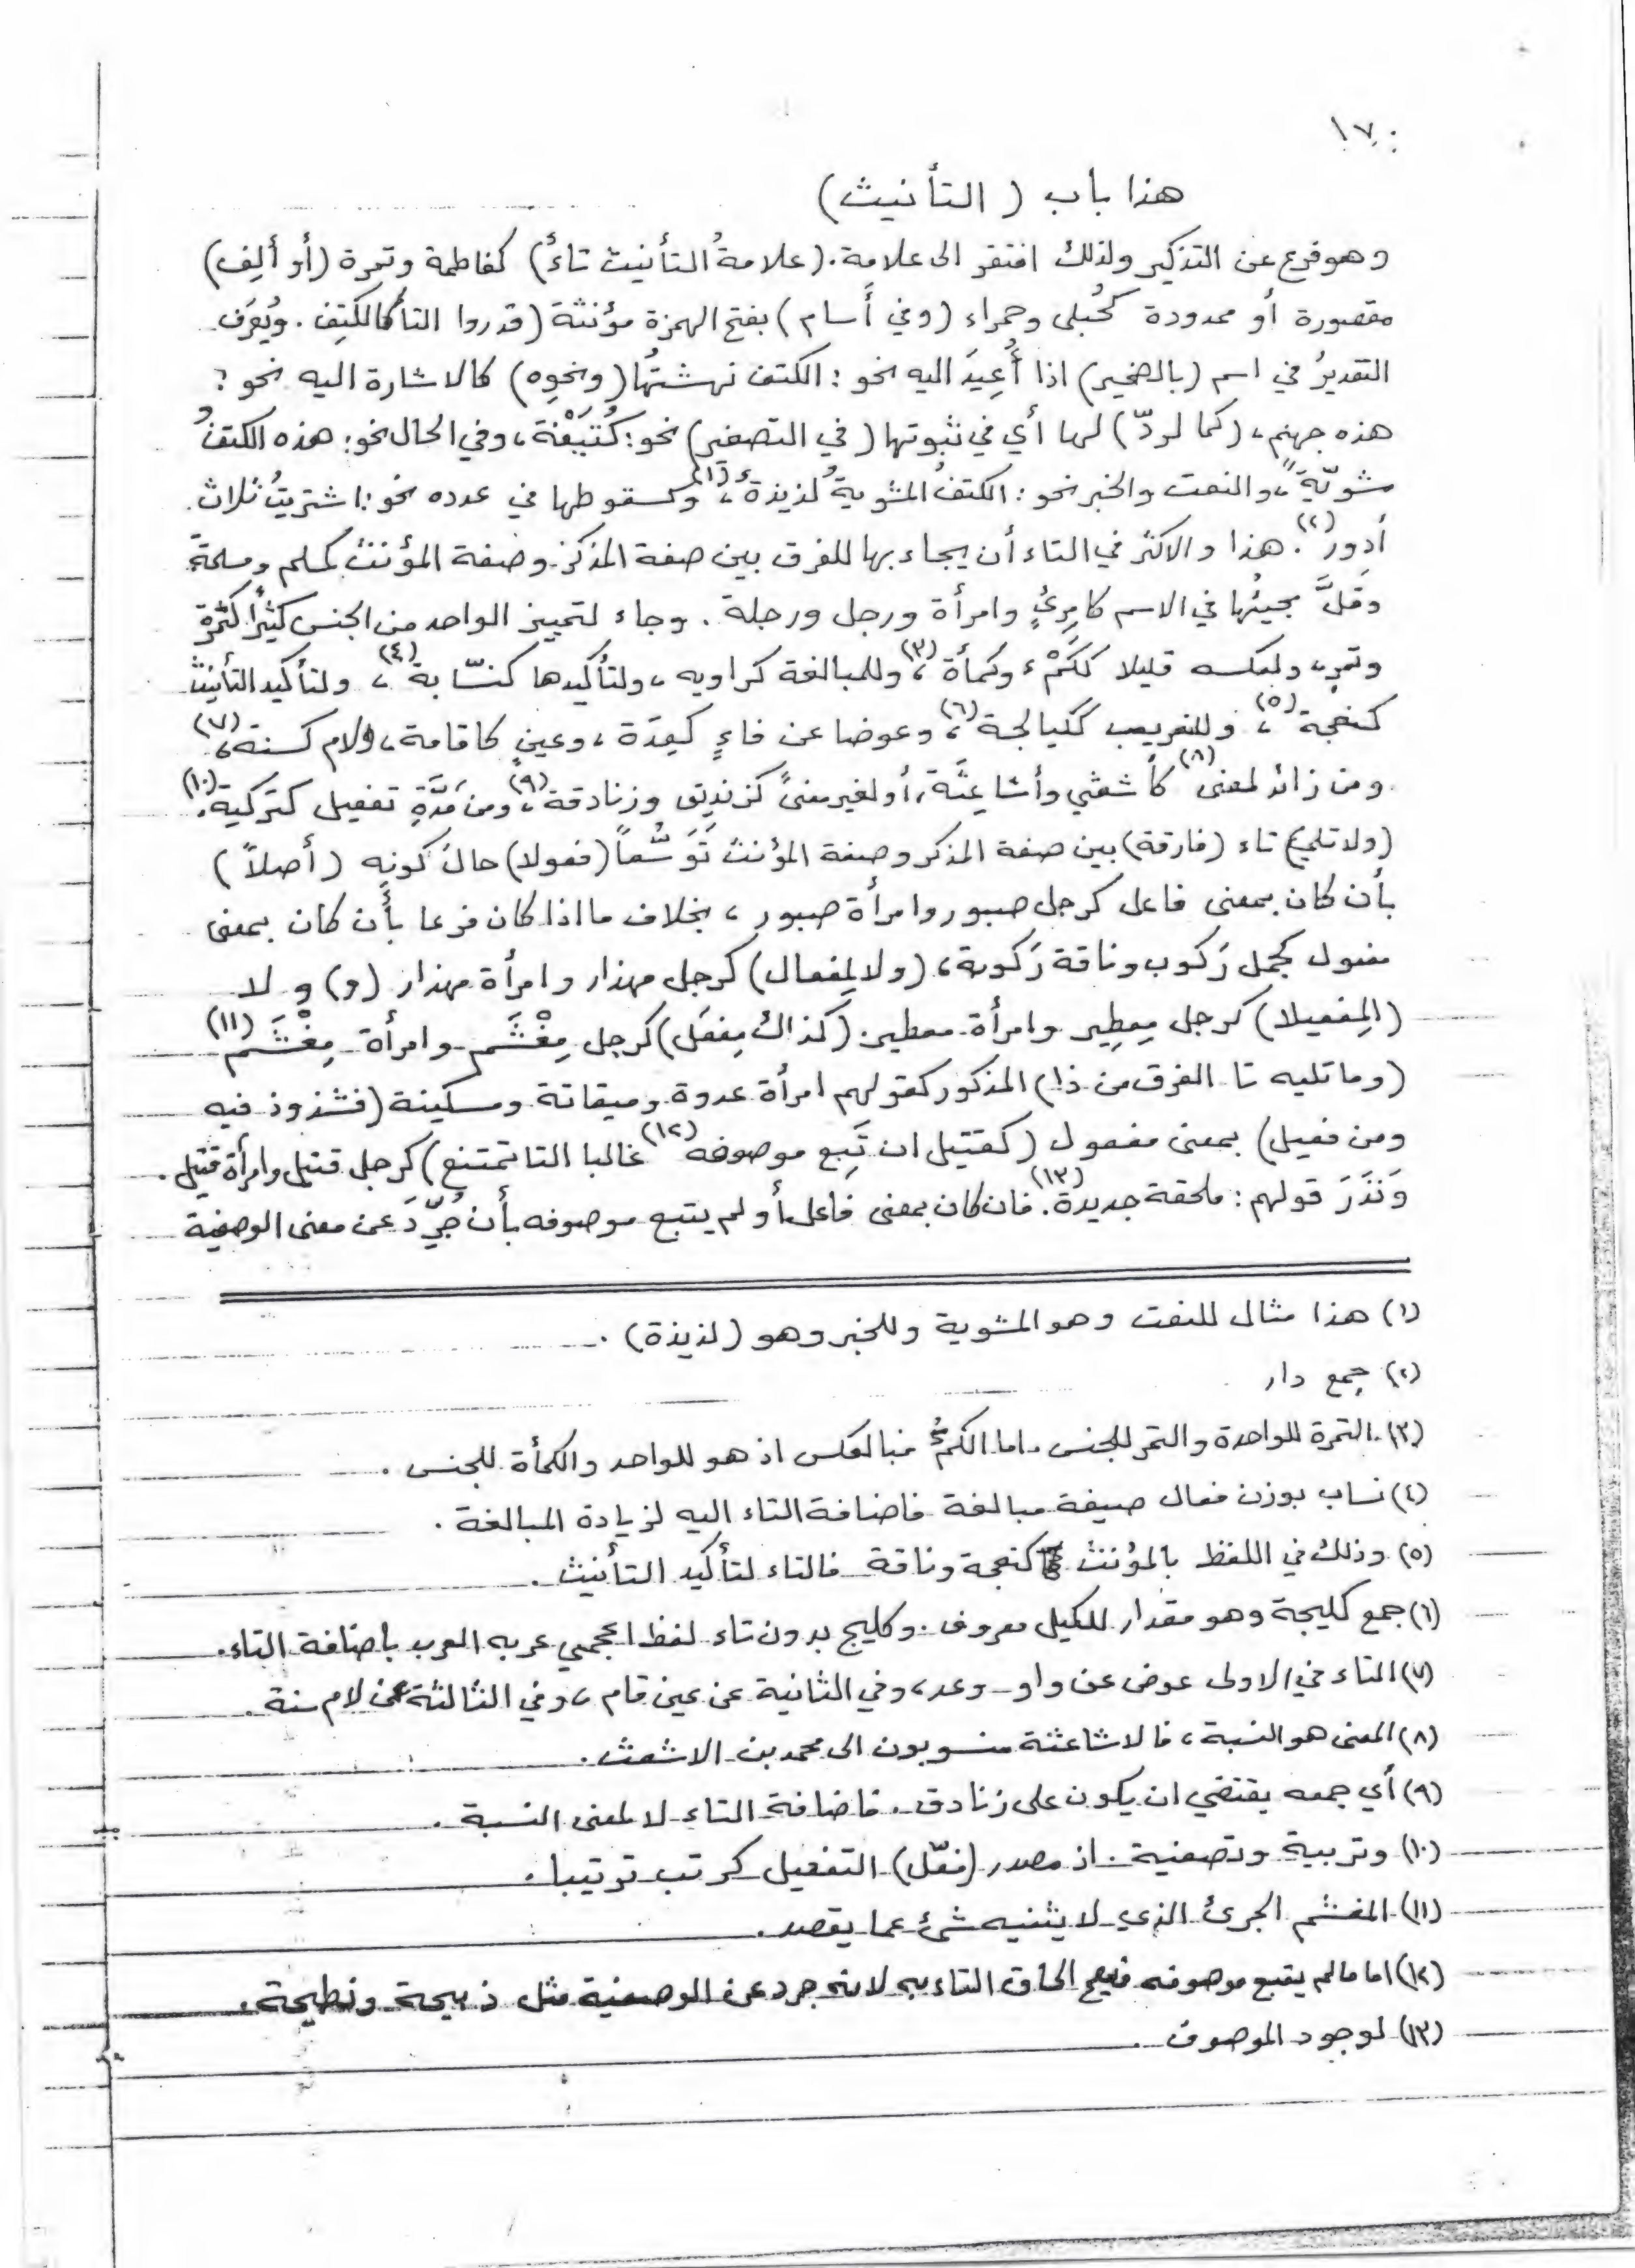 ١٧٠
هذا باب ( التأنيث )
وهو فرع عن التذكير ولذلك افتقر الى علامة . (علامةُ التأنيث تاءٌ) كفاطمة وتمرة (أو ألِف)
مقصورة أو ممدودة كحُبلى وحمراء (وفي أَسام) بفتح الهمزة مؤنثة (قدروا التا كالكَتِف . ويُعرَف
التقديرُ في اسم (بالضمير) اذا أُعِيدَ اليه نحو : الكتف نهشتُها (ونحوِه) كالاشارة اليه نحو :
هذه جهنم ، (كما لردّ) لها أي في ثبوتها (في التصغير) نحو : كُتَيْفَة ، وفي الحال نحو : هذه الكتفُ
مشويّةً ، والنعت والخبر نحو : الكتفُ المشويةُ لذيذةٌ (١)، وسقوطها في عدده نحو : اشتريتُ ثلاث
أدور (٢). هذا والاكثر في التاء أن يجاء بها للفرق بين صفة المذكر وصفة المؤنث كمسلم ومسلمة
وقلَّ مجيئُها في الاسم كامرِئٍ وامرأة ورجل ورجلة . وجاء لتمييز الواحد من الجنس كثيرًا كتمرة
وتمر ، ولعكسه قليلا ككَمْء وكمأة (٣)، وللمبالغة كراويه ، ولتأكيدها كنسّابة (٤)، ولتأكيد التأنيث
كنعجة (٥)، وللتعريب ككيالجة (٦)، وعوضا عن فاءٍ كعِدَة ، وعينٍ كاقامة ، ولام كسنة (٧)،
ومن زائد لمعنى (٨) كأشعثي وأشاعِثَة ، أو لغير معنىً كزنديق وزنادقة (٩)، ومن مَدَّةِ تفعيل كتزكية (١٠).
(ولا تلي) تاء (فارقة) بين صفة المذكر وصفة المؤنث تَوَسُّعاً (فعولا) حالَ كونِه (أصلاً)
بأن كان بمعنى فاعل كرجل صبور وامرأة صبور ، بخلاف ما اذا كان فرعا بأن كان بمعنى
مفعول كجمل رَكوب وناقة رَكوبة ، (ولا لمِفعال) كرجل مهذار وامرأة مهذار (و) و لا
(المِفعيلا) كرجل مِعطِير وامرأة معطير . (كذاك مِفعَل) كرجل مِغْشَم وامرأة مِغْشَم (١١)
(وما تليه تا الفرق من ذا) المذكور كقولهم امرأة عدوة وميقانة ومسكينة (فشذوذ فيه
ومن فعيل) بمعنى مفعول (كقتيل ان تَبِع موصوفه (١٢) غالبا التا تمتنع) كرجل قتيل وامرأة قتيل .
وَنَدَرَ قولهم : ملحفة جديدة (١٣). فان كان بمعنى فاعل أو لم يتبع موصوفه بأن جُرِّدَ عن معنى الوصفية
(١) هذا مثال للنعت وهو المشوية وللخبر وهو (لذيذة) .
(٢) جمع دار
(٣) التمرة للواحدة والتمر للجنس . اما الكمْءُ فبالعكس اذ هو للواحد والكمأة للجنس .
(٤) نساب بوزن فعال صيغة مبالغة فاضافة التاء اليه لزيادة المبالغة .
(٥) وذلك في اللفظ بالمؤنث كنعجة وناقة فالتاء لتأكيد التأنيث .
(٦) جمع كليجة وهو مقدار للكيل معروف . وكليج بدون تاء لفظ اعجمي عربه العرب باضافة التاء .
(٧) التاء في الاولى عوض عن واو وعد ، وفي الثانية عن عين قام ، وفي الثالثة عن لام سنة .
(٨) المعنى هو النسبة ، فالاشاعثة منسوبون الى محمد بن الاشعث .
(٩) أي جمعه يقتضي ان يكون على زنادق . فاضافة التاء لا لمعنى النسبة .
(١٠) وتربية وتصفية . اذ مصدر (فعّل) التفعيل كرتب ترتيبا .
(١١) المغشم الجرئ الذي لا يثنيه شئ عما يقصد .
(١٢) اما مالم يتبع موصوفه فيصح الحاق التاء به لانه جرد عن الوصفية مثل ذبيحة ونطيحة .
(١٣) لوجود الموصوف .